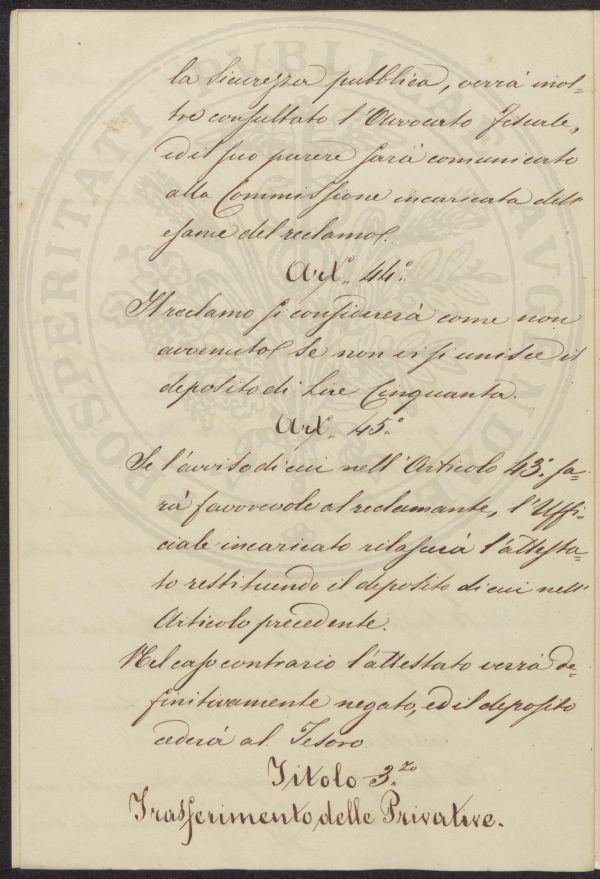 la Sicurezza pubblica, verrà inol-
tre consultato l'Avvocato Fiscale,
ed il suo parere sarà comunicato
alla Commissione incaricata dell'
esame del reclamo.
Art.° 44.°
Il reclamo si considererà come non
avvenuto se non vi si unisce il
deposito di Lire Cinquanta.
Art.° 45.°
Se l'avviso di cui nell'Articolo 43.° sa-
rà favorevole al reclamante, l'Uffi-
ciale incaricato rilascierà l'attesta-
to restituendo il deposito di cui nell'
Articolo precedente.
Nel caso contrario l'attestato verrà de-
finitivamente negato, ed il deposito
cederà al Tesoro.
Titolo 3.zo
Trasferimento delle Privative.
PROSPERITATI PUBLICAE AUGENDAE